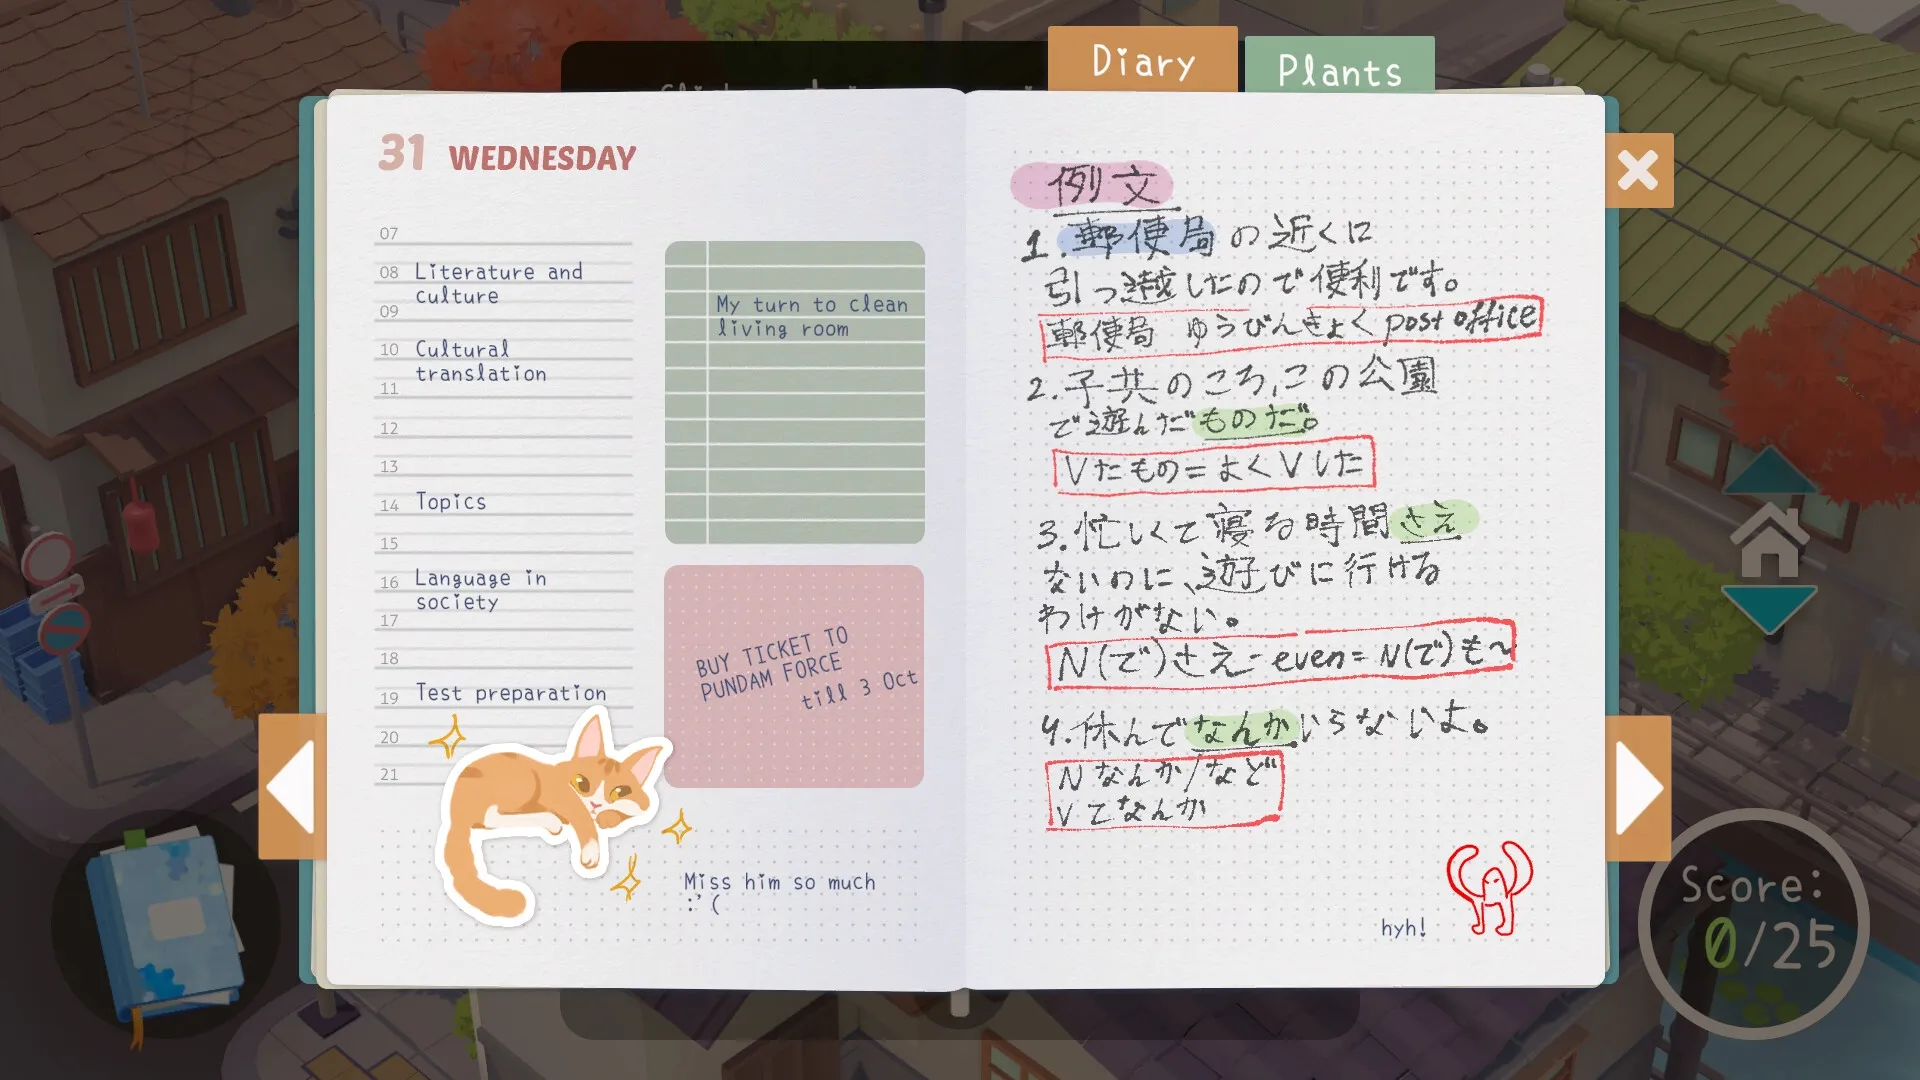 Diary
Plants
31 WEDNESDAY
07
08 Literature and
culture
09
10 Cultural
translation
11
12
13
14 Topics
15
16 Language in
society
17
18
19 Test preparation
20
21
My turn to clean
living room
BUY TICKET TO
PUNDAM FORCE
till 3 Oct
Miss him so much
:'(
例文
1.郵便局の近くに
引っ越したので便利です。
郵便局 ゆうびんきょく post office
2.子供のころ,この公園
で遊んだものだ。
Vたもの=よくVした
3.忙しくて寝る時間さえ
ないのに、遊びに行ける
わけがない。
N(で)さえ-even=N(で)も~
4.休んでなんかいらないよ。
Nなんか/など
Vてなんか
hyh!
Score:
0/25